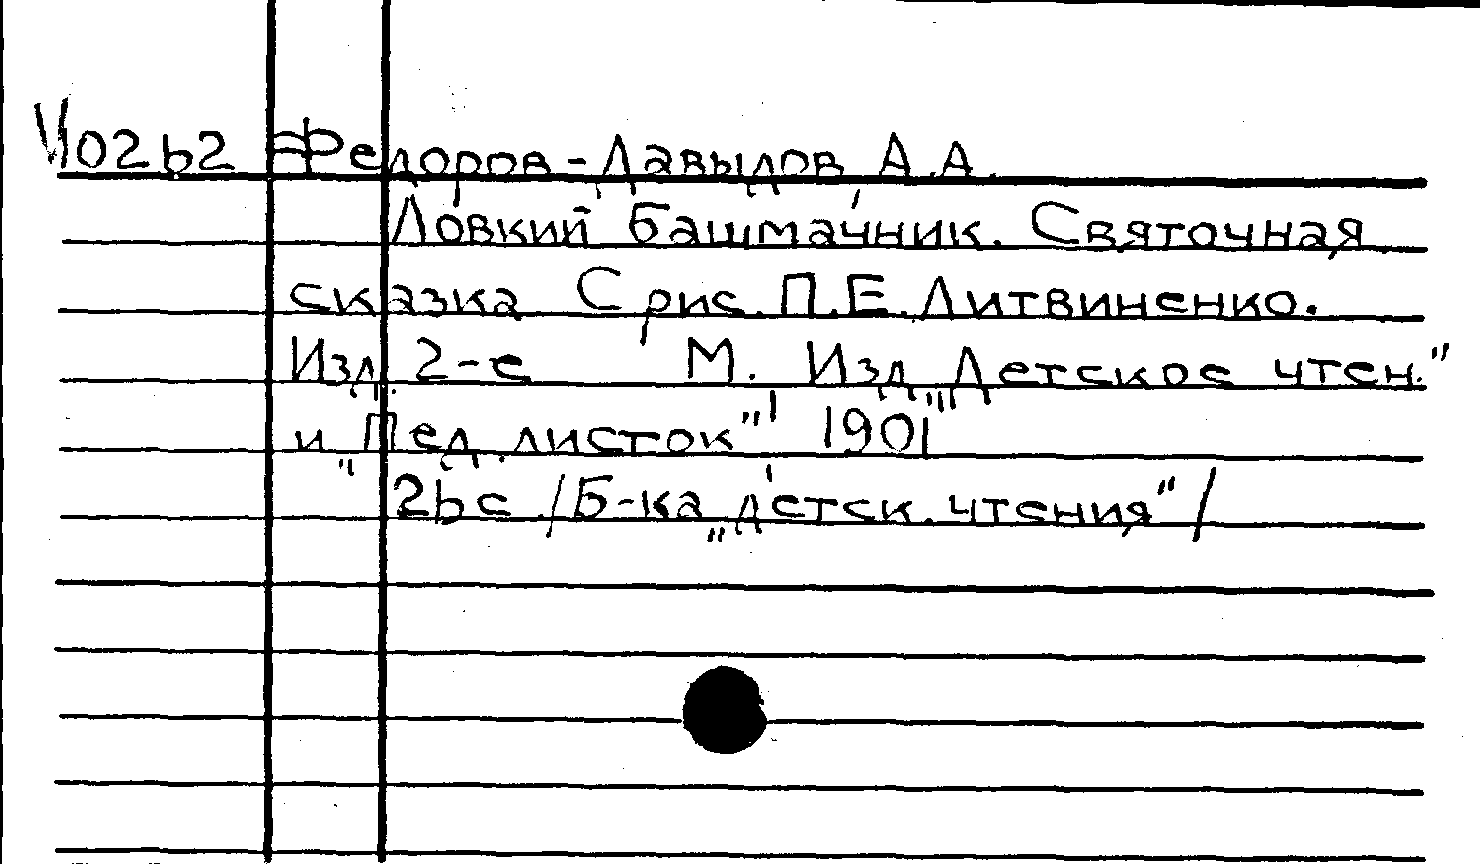 V102b2 Федоров-Давыдов, А.А.
Ловкий башмачник. Святочная
сказка С рис. П.Е. Литвиненко.
Изд. 2-е М. Изд. „Детское чтен."
и „Пед. листок", 1901
26 с. /Б-ка „детск. чтения"/